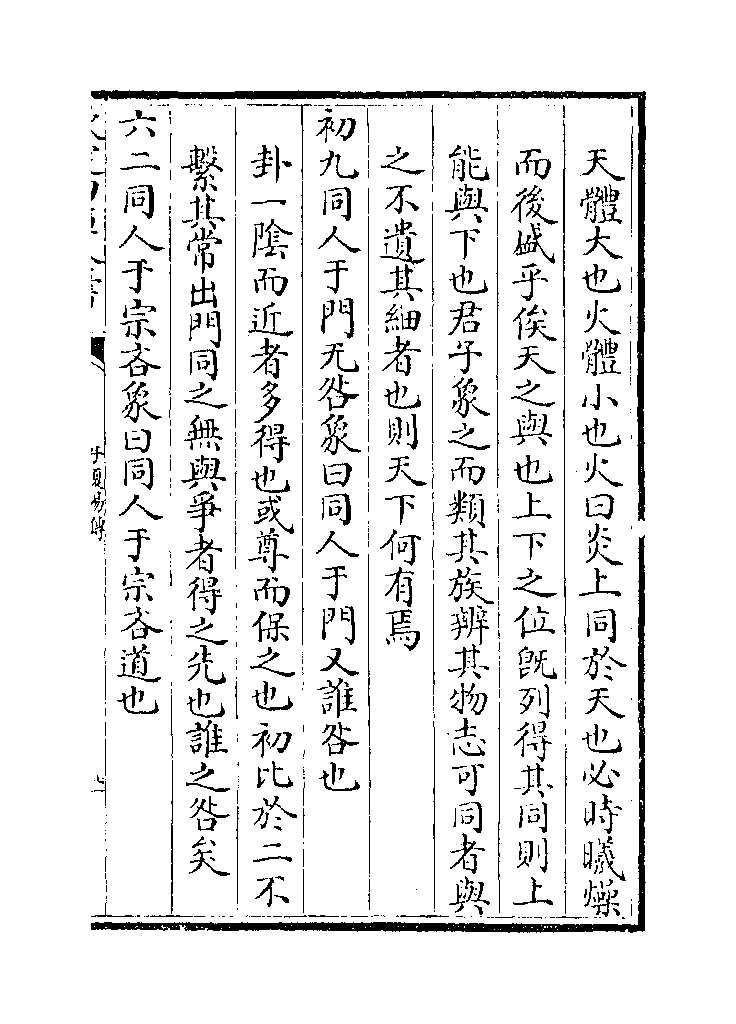 天體大也火體小也火曰炎上同於天也必時曦燥
而後盛乎俟天之與也上下之位旣列得其同則上
能與下也君子象之而類其族辨其物志可同者與
之不遺其細者也則天下何有焉
初九同人于門无咎象曰同人于門又誰咎也
卦一陰而近者多得也或尊而保之也初比於二不
繫其常出門同之無與爭者得之先也誰之咎矣
六二同人于宗吝象曰同人于宗吝道也
子夏易傳